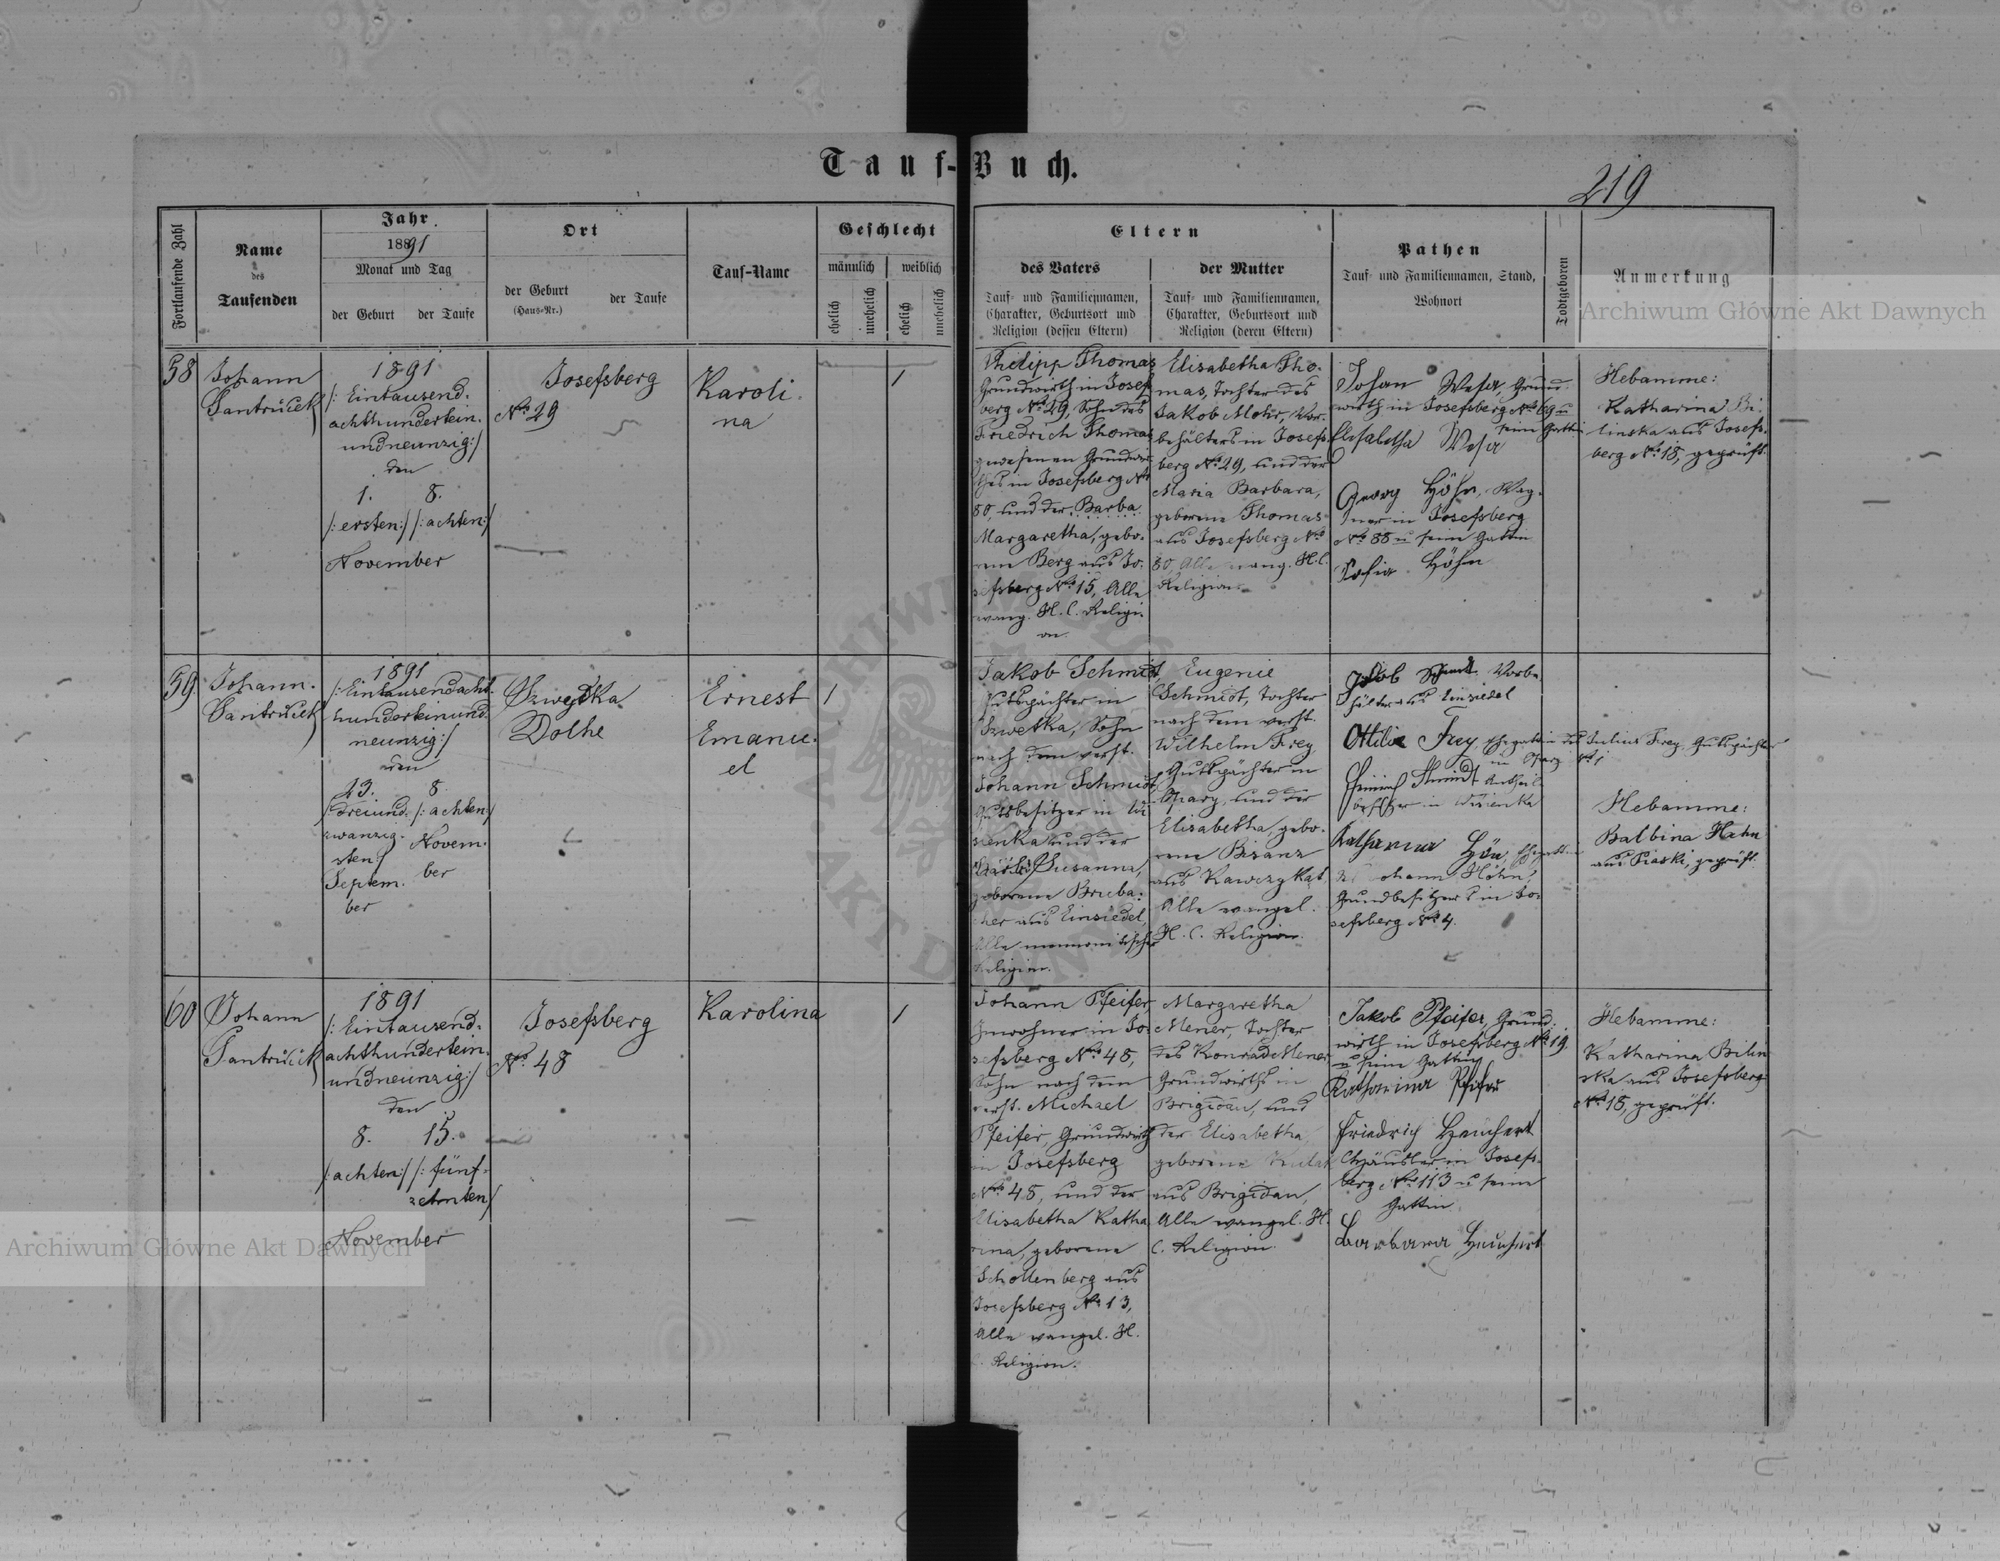 Tauf-Buch.
219
Fortlaufende Zahl
Name
des
Taufenden
Jahr
1891
Monat und Tag
der Geburt
der Taufe
Ort
der Geburt
(Haus-Nr.)
der Taufe
Tauf-Name
Geschlecht
männlich
weiblich
ehelich
unehelich
ehelich
unehelich
Eltern
des Vaters
Tauf- und Familiennamen,
Charakter, Geburtsort und
Religion (dessen Eltern)
der Mutter
Tauf- und Familiennamen,
Charakter, Geburtsort und
Religion (deren Eltern)
Pathen
Tauf- und Familiennamen, Stand,
Wohnort
Todtgeboren
Anmerkung
58
Johann
Santrůček
1891
/: Eintausend-
achthundertein-
undneunzig:/
den
1. 8.
/:ersten:/ /:achten:/
November
Josefsberg
No 29
Karoli-
na
1
Philipp Thomas
Grundwirth in Josefs
berg No 29, Sohn des
Friedrich Thomas
gewesenen Grundwir-
thes in Josefsberg No
80, und der Barba
Margaretha, gebo-
rene Berg aus Jo-
sefsberg No 15, Alle
evang. H. C. Religi-
on.
Elisabetha Tho-
mas, Tochter des
Jakob Mohr, Vor-
behälters in Josefs-
berg No 29, und der
Maria Barbara,
geborene Thomas
aus Josefsberg No
80, Alle evang. H. C.
Religion.
Johan Wesa, Grund-
wirth in Josefsberg No 69 u
seine Gattin
Elisabetha Wesa
Georg Höhn, Wag-
ner in Josefsberg
No 88 u seine Gattin
Sofia Höhn
Hebamme:
Katharina Bi-
linska aus Josefs-
berg No 18, geprüft.
59
Johann
Santrůček
1891
/: Eintausendacht-
hunderteinund-
neunzig:/
den
23. 8.
/:dreiund- /:achten:/
zwanzig- Novem-
sten:/ ber
Septem-
ber
Szwejtka
Dolhe
Ernest
Emanu-
el
1
Jakob Schmidt,
Gutspächter in
Szwetka, Sohn
nach dem verst.
Johann Schmidt
Gutsbesitzer in Wi-
sienka und der
Susanna,
geborene Bruba-
cher aus Einsiedel,
Alle mennonitischer
Religion.
Eugenie
Schmidt, Tochter
nach dem verst.
Wilhelm Frey,
Gutspächter in
Opary, und der
Elisabetha, gebo-
rene Bisanz
aus Kawczykąt
Alle evangel.
H. C. Religion
Jakob Schmidt Vorbe-
hälter aus Einsiedel
Ottilie Frey, Ehegattin des Julius Frey, Gutspächter
in Opary No 1
Heinrich Schmidt Antheil-
besitzer in Wisienka
Katharina Hön, Ehegattin
des Johann Höhn,
Grundbesitzers in Jo-
sefsberg No 4.
Hebamme:
Balbina Hahn
aus Piaski, geprüft.
60
Johann
Santrůček
1891
/: Eintausend-
achthundertein-
undneunzig:/
den
8. 15.
/:achten:/ /:fünf-
zehnten:/
November
Josefsberg
No 48
Karolina
1
Johann Pfeifer,
Inwohner in Jo-
sefsberg No 48,
Sohn nach dem
verst. Michael
Pfeifer, Grundwirth
in Josefsberg
No 45, und der
Elisabetha Katha-
rina, geborene
Schollenberg aus
Josefsberg No 13,
Alle evangel. H.
C. Religion.
Margaretha
Mener, Tochter
des Konrad Mener
Grundwirths in
Brigidau, und
der Elisabetha,
geborene
aus Brigidau,
Alle evangel. H.
C. Religion.
Jakob Pfeifer, Grund-
wirth in Josefsberg No 19.
u seine Gattin
Katharina Pfeifer
Friedrich Heuchert
Häusler in Josefs-
berg No 113 u seine
Gattin
Barbara Heuchert
Hebamme:
Katharina Bilin
ska aus Josefsberg
No 18, geprüft.
Archiwum Główne Akt Dawnych
Archiwum Główne Akt Dawnych